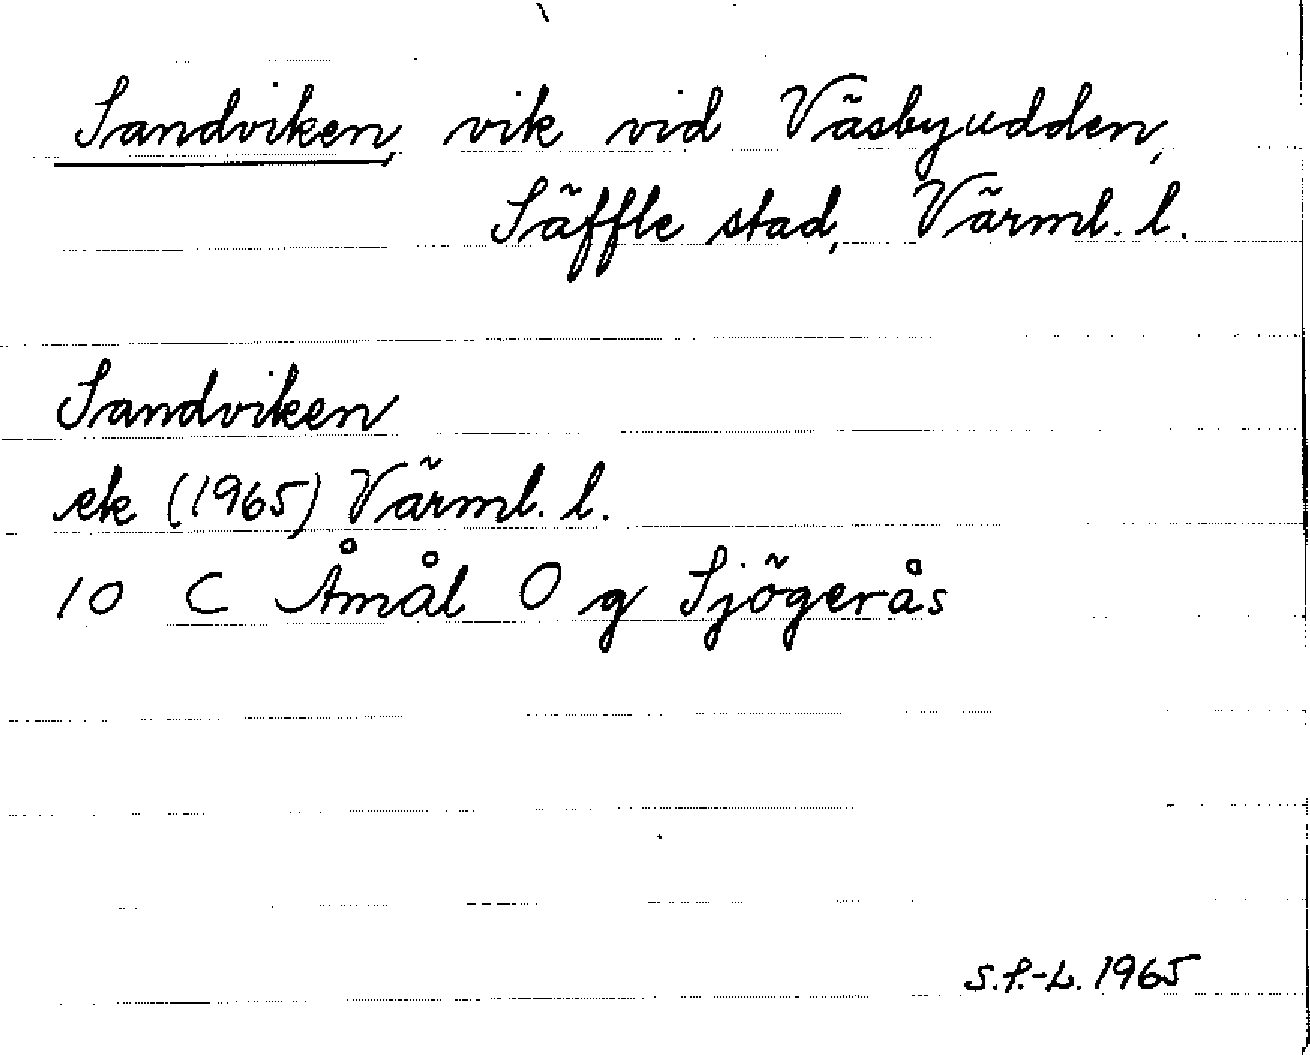 Sandviken, vik vid Väsbyudden,
Säffle stad, Värml. l.
Sandviken
ek (1965) Värml. l.
10 C Åmål O g Sjögerås
S.P.-L. 1965